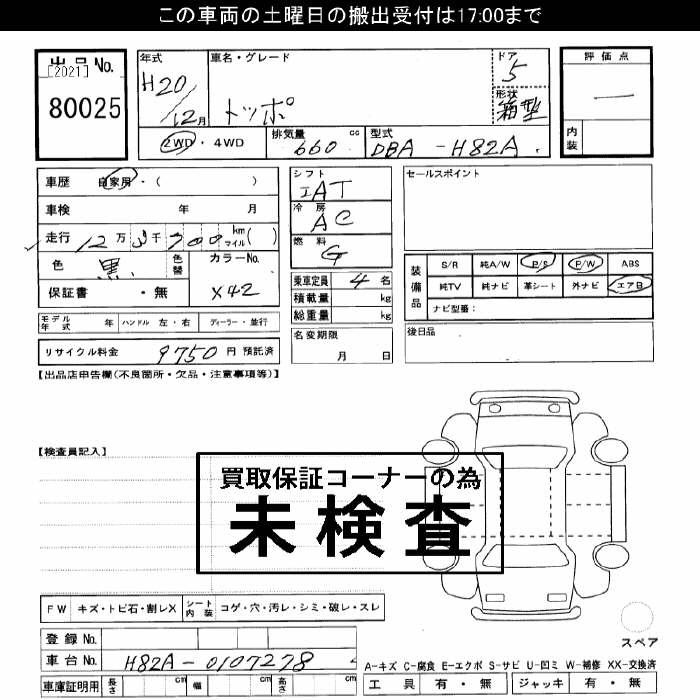 この車両の土曜日の搬出受付は17:00まで
出品No.
[2021]
80025
年式 H20/12月
車名・グレード トッポ
ドア 5
形状 箱型
評価点 一
内装
2WD・4WD
排気量 660 cc
型式 DBA-H82A
車歴 自家用・( )
車検 年 月
走行 12万3千700 km マイル( )
色 黒 色替
カラーNo. X42
保証書・無
シフト IAT
冷房 AC
燃料 G
乗車定員 4名
積載量 kg
総重量 kg
セールスポイント
装備品
S/R 純A/W P/S P/W ABS
純TV 純ナビ 革シート 外ナビ エアB
ナビ型番:
モデル年式 年 ハンドル 左・右 ディーラー・並行
名変期限 月 日
後日品
リサイクル料金 9750 円 預託済
【出品店申告欄(不良箇所・欠品・注意事項等)】
【検査員記入】
買取保証コーナーの為
未検査
FW キズ・トビ石・割レX シート内装 コゲ・穴・汚レ・シミ・破レ・スレ
スペア
登録No.
車台No. H82A-0107278
A-キズ C-腐食 E-エクボ S-サビ U-凹ミ W-補修 XX-交換済
車庫証明用 長さ cm 幅 cm 高さ cm
工具 有・無 ジャッキ 有・無